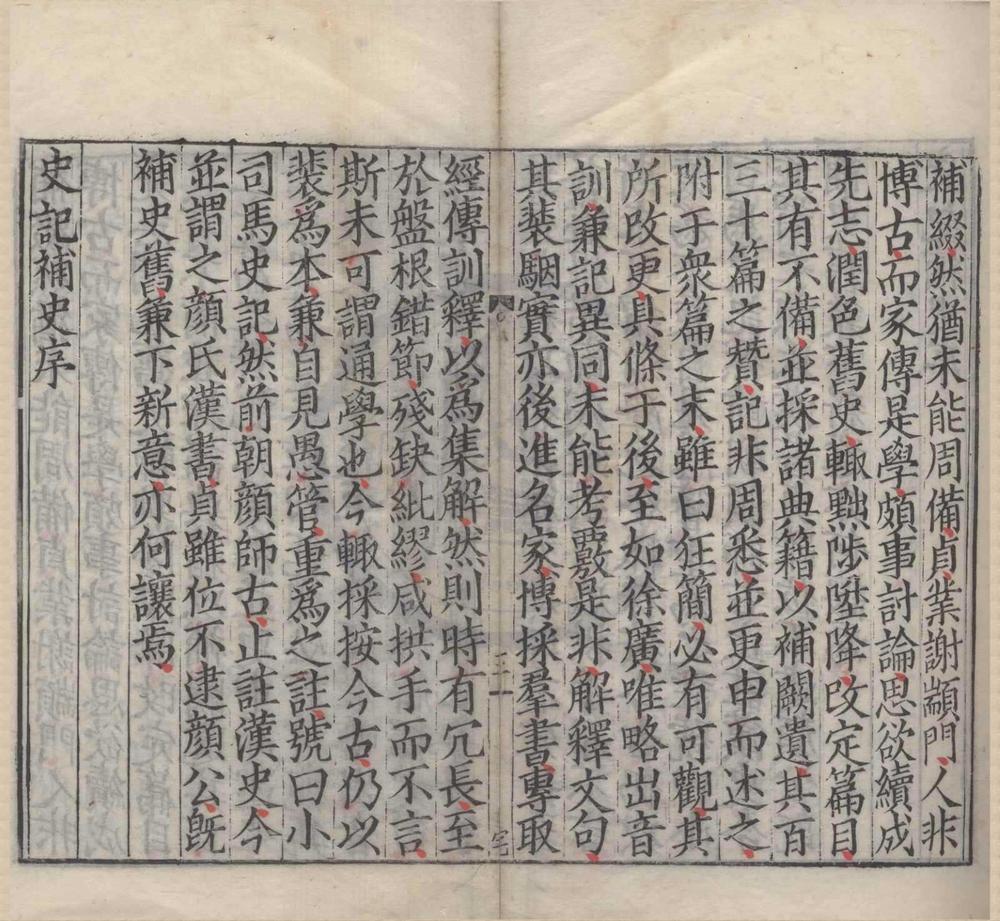 補綴然猶未能周備貞業謝顓門人非
博古而家傳是學頗事討論思欲續成
先志潤色舊史輙黜陟陞降改定篇目
其有不備並採諸典籍以補闕遺其百
三十篇之賛記非周悉並更申而述之
附于衆篇之末雖曰狂簡必有可觀其
所改更具條于後至如徐廣唯略出音
訓兼記異同未能考覈是非解釋文句
其裴駰實亦後進名家博採羣書專取
經傳訓釋以爲集解然則時有冗長至
於盤根錯節殘缺紕繆咸拱手而不言
斯未可謂通學也今輙採按今古仍以
裴爲本兼自見愚管重爲之註號曰小
司馬史記然前朝顔師古止註漢史今
並謂之顔氏漢書貞雖位不逮顔公旣
補史舊兼下新意亦何讓焉
史記補史序